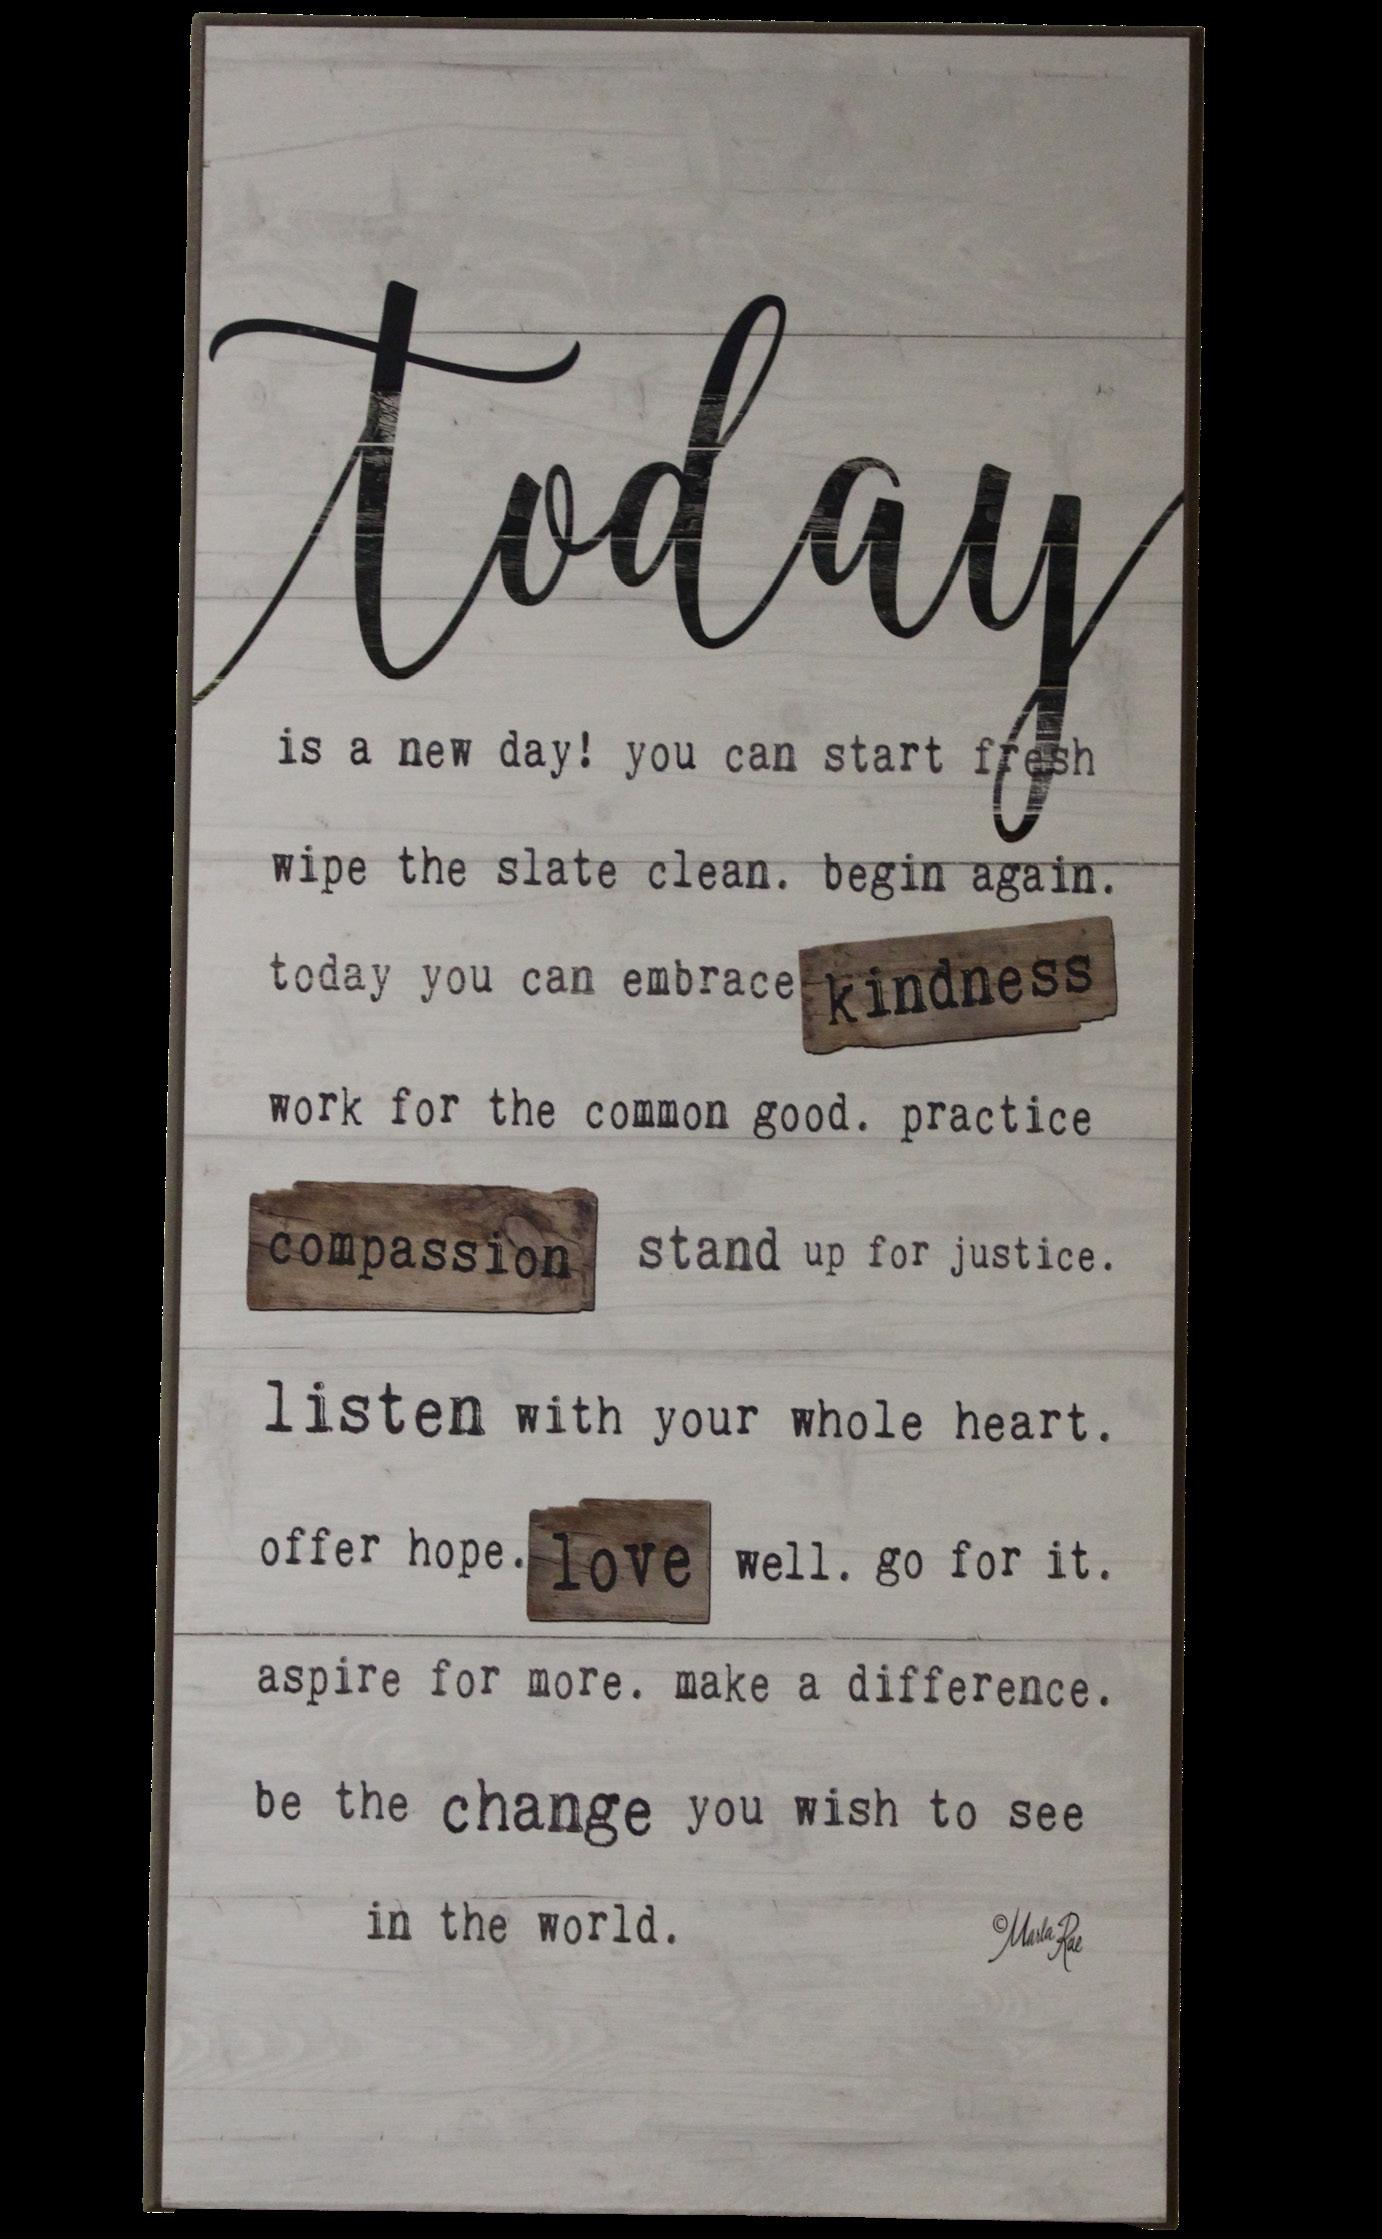 today
is a new day! you can start fresh
wipe the slate clean. begin again.
today you can embrace kindness
work for the common good. practice
compassion stand up for justice.
listen with your whole heart.
offer hope. love well. go for it.
aspire for more. make a difference.
be the change you wish to see
in the world.
©Marla Rae